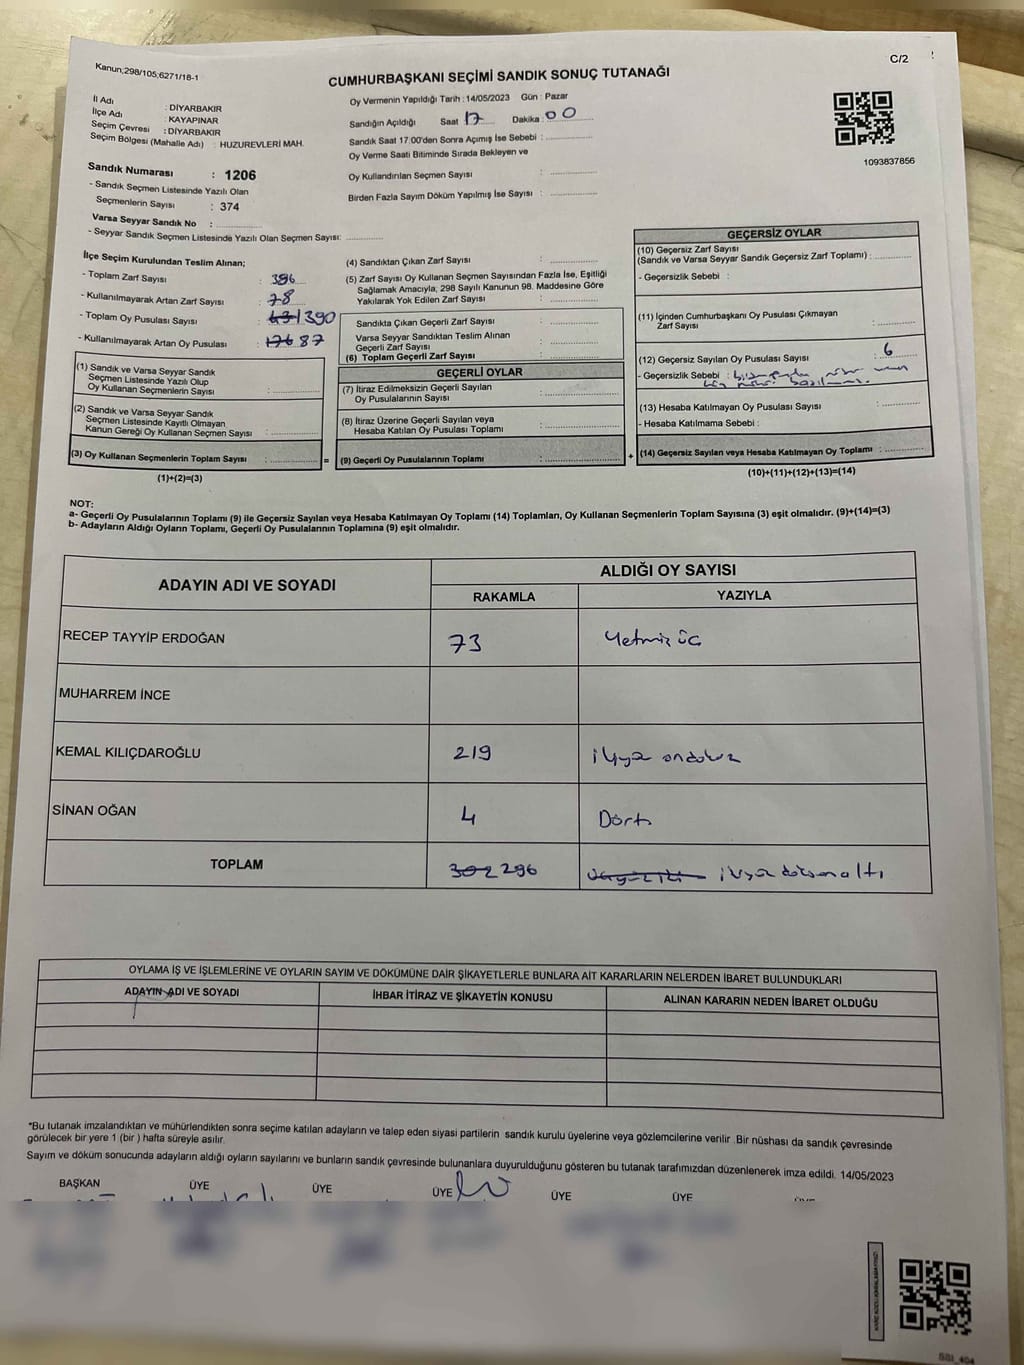 Kanun;298/105;6271/18-1
C/2
CUMHURBAŞKANI SEÇİMİ SANDIK SONUÇ TUTANAĞI
İl Adı : DİYARBAKIR
İlçe Adı : KAYAPINAR
Seçim Çevresi : DİYARBAKIR
Seçim Bölgesi (Mahalle Adı) : HUZUREVLERİ MAH.
Oy Vermenin Yapıldığı Tarih : 14/05/2023 Gün : Pazar
Sandığın Açıldığı Saat 17 Dakika : 00
Sandık Saat 17:00'den Sonra Açımış İse Sebebi :
Oy Verme Saati Bitiminde Sırada Bekleyen ve
Oy Kullandırılan Seçmen Sayısı :
Birden Fazla Sayım Döküm Yapılmış İse Sayısı :
1093837856
Sandık Numarası : 1206
- Sandık Seçmen Listesinde Yazılı Olan
Seçmenlerin Sayısı : 374
Varsa Seyyar Sandık No :
- Seyyar Sandık Seçmen Listesinde Yazılı Olan Seçmen Sayısı:
İlçe Seçim Kurulundan Teslim Alınan;
- Toplam Zarf Sayısı :
- Kullanılmayarak Artan Zarf Sayısı : 78
- Toplam Oy Pusulası Sayısı : 390
- Kullanılmayarak Artan Oy Pusulası : 87
(1) Sandık ve Varsa Seyyar Sandık
Seçmen Listesinde Yazılı Olup
Oy Kullanan Seçmenlerin Sayısı :
(2) Sandık ve Varsa Seyyar Sandık
Seçmen Listesinde Kayıtlı Olmayan
Kanun Gereği Oy Kullanan Seçmen Sayısı :
(3) Oy Kullanan Seçmenlerin Toplam Sayısı :
(1)+(2)=(3)
(4) Sandıktan Çıkan Zarf Sayısı :
(5) Zarf Sayısı Oy Kullanan Seçmen Sayısından Fazla İse, Eşitliği
Sağlamak Amacıyla; 298 Sayılı Kanunun 98. Maddesine Göre
Yakılarak Yok Edilen Zarf Sayısı :
Sandıkta Çıkan Geçerli Zarf Sayısı :
Varsa Seyyar Sandıktan Teslim Alınan
Geçerli Zarf Sayısı :
(6) Toplam Geçerli Zarf Sayısı :
GEÇERLİ OYLAR
(7) İtiraz Edilmeksizin Geçerli Sayılan
Oy Pusulalarının Sayısı :
(8) İtiraz Üzerine Geçerli Sayılan veya
Hesaba Katılan Oy Pusulası Toplamı :
= (9) Geçerli Oy Pusulalarının Toplamı :
GEÇERSİZ OYLAR
(10) Geçersiz Zarf Sayısı
(Sandık ve Varsa Seyyar Sandık Geçersiz Zarf Toplamı) :
- Geçersizlik Sebebi :
(11) İçinden Cumhurbaşkanı Oy Pusulası Çıkmayan
Zarf Sayısı :
(12) Geçersiz Sayılan Oy Pusulası Sayısı : 6
- Geçersizlik Sebebi :
(13) Hesaba Katılmayan Oy Pusulası Sayısı :
- Hesaba Katılmama Sebebi :
+ (14) Geçersiz Sayılan veya Hesaba Katılmayan Oy Toplamı :
(10)+(11)+(12)+(13)=(14)
NOT:
a- Geçerli Oy Pusulalarının Toplamı (9) ile Geçersiz Sayılan veya Hesaba Katılmayan Oy Toplamı (14) Toplamları, Oy Kullanan Seçmenlerin Toplam Sayısına (3) eşit olmalıdır. (9)+(14)=(3)
b- Adayların Aldığı Oyların Toplamı, Geçerli Oy Pusulalarının Toplamına (9) eşit olmalıdır.
ADAYIN ADI VE SOYADI
ALDIĞI OY SAYISI
RAKAMLA YAZIYLA
RECEP TAYYİP ERDOĞAN 73 Yetmiş üç
MUHARREM İNCE
KEMAL KILIÇDAROĞLU 219 ikiyüz ondokuz
SİNAN OĞAN 4 Dört
TOPLAM 302 296 ikiyüz doksan altı
OYLAMA İŞ VE İŞLEMLERİNE VE OYLARIN SAYIM VE DÖKÜMÜNE DAİR ŞİKAYETLERLE BUNLARA AİT KARARLARIN NELERDEN İBARET BULUNDUKLARI
ADAYIN ADI VE SOYADI İHBAR İTİRAZ VE ŞİKAYETİN KONUSU ALINAN KARARIN NEDEN İBARET OLDUĞU
*Bu tutanak imzalandıktan ve mühürlendikten sonra seçime katılan adayların ve talep eden siyasi partilerin sandık kurulu üyelerine veya gözlemcilerine verilir. Bir nüshası da sandık çevresinde
görülecek bir yere 1 (bir ) hafta süreyle asılır.
Sayım ve döküm sonucunda adayların aldığı oyların sayılarını ve bunların sandık çevresinde bulunanlara duyurulduğunu gösteren bu tutanak tarafımızdan düzenlenerek imza edildi. 14/05/2023
BAŞKAN ÜYE ÜYE ÜYE ÜYE ÜYE